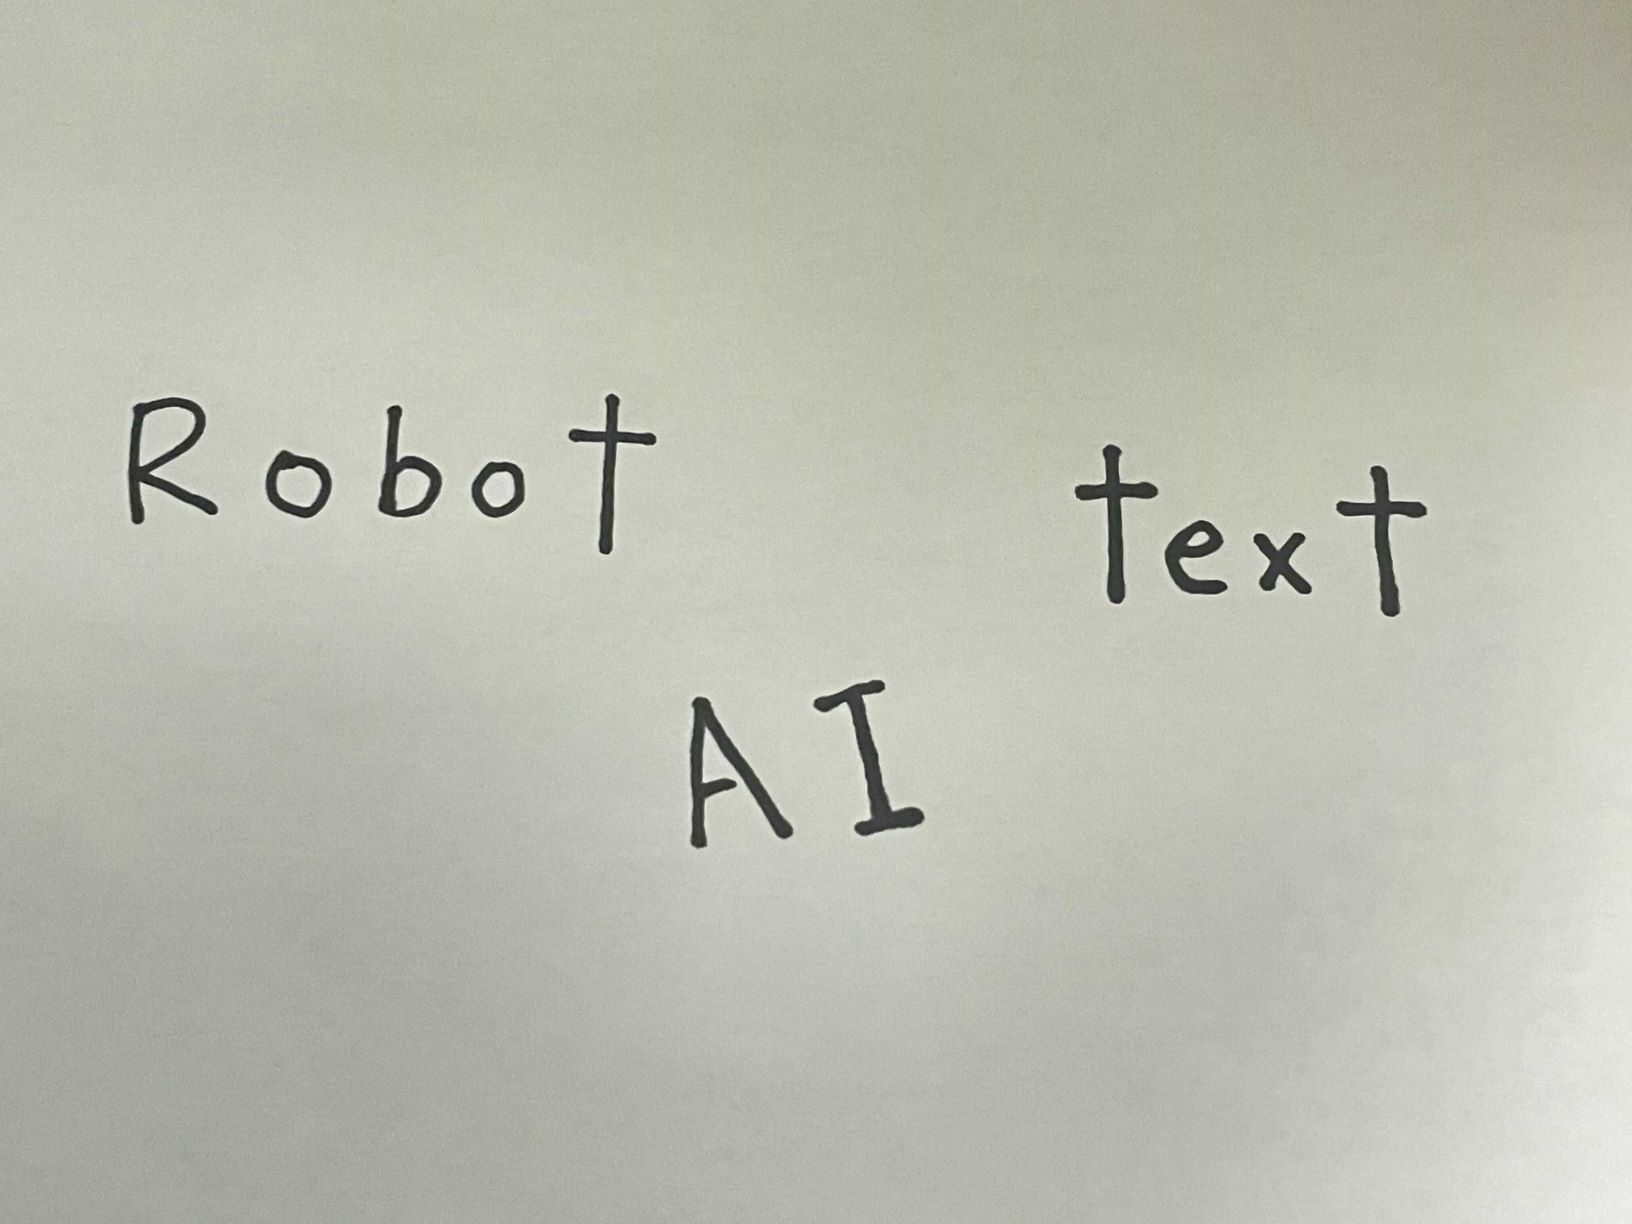 Robot
text
AI